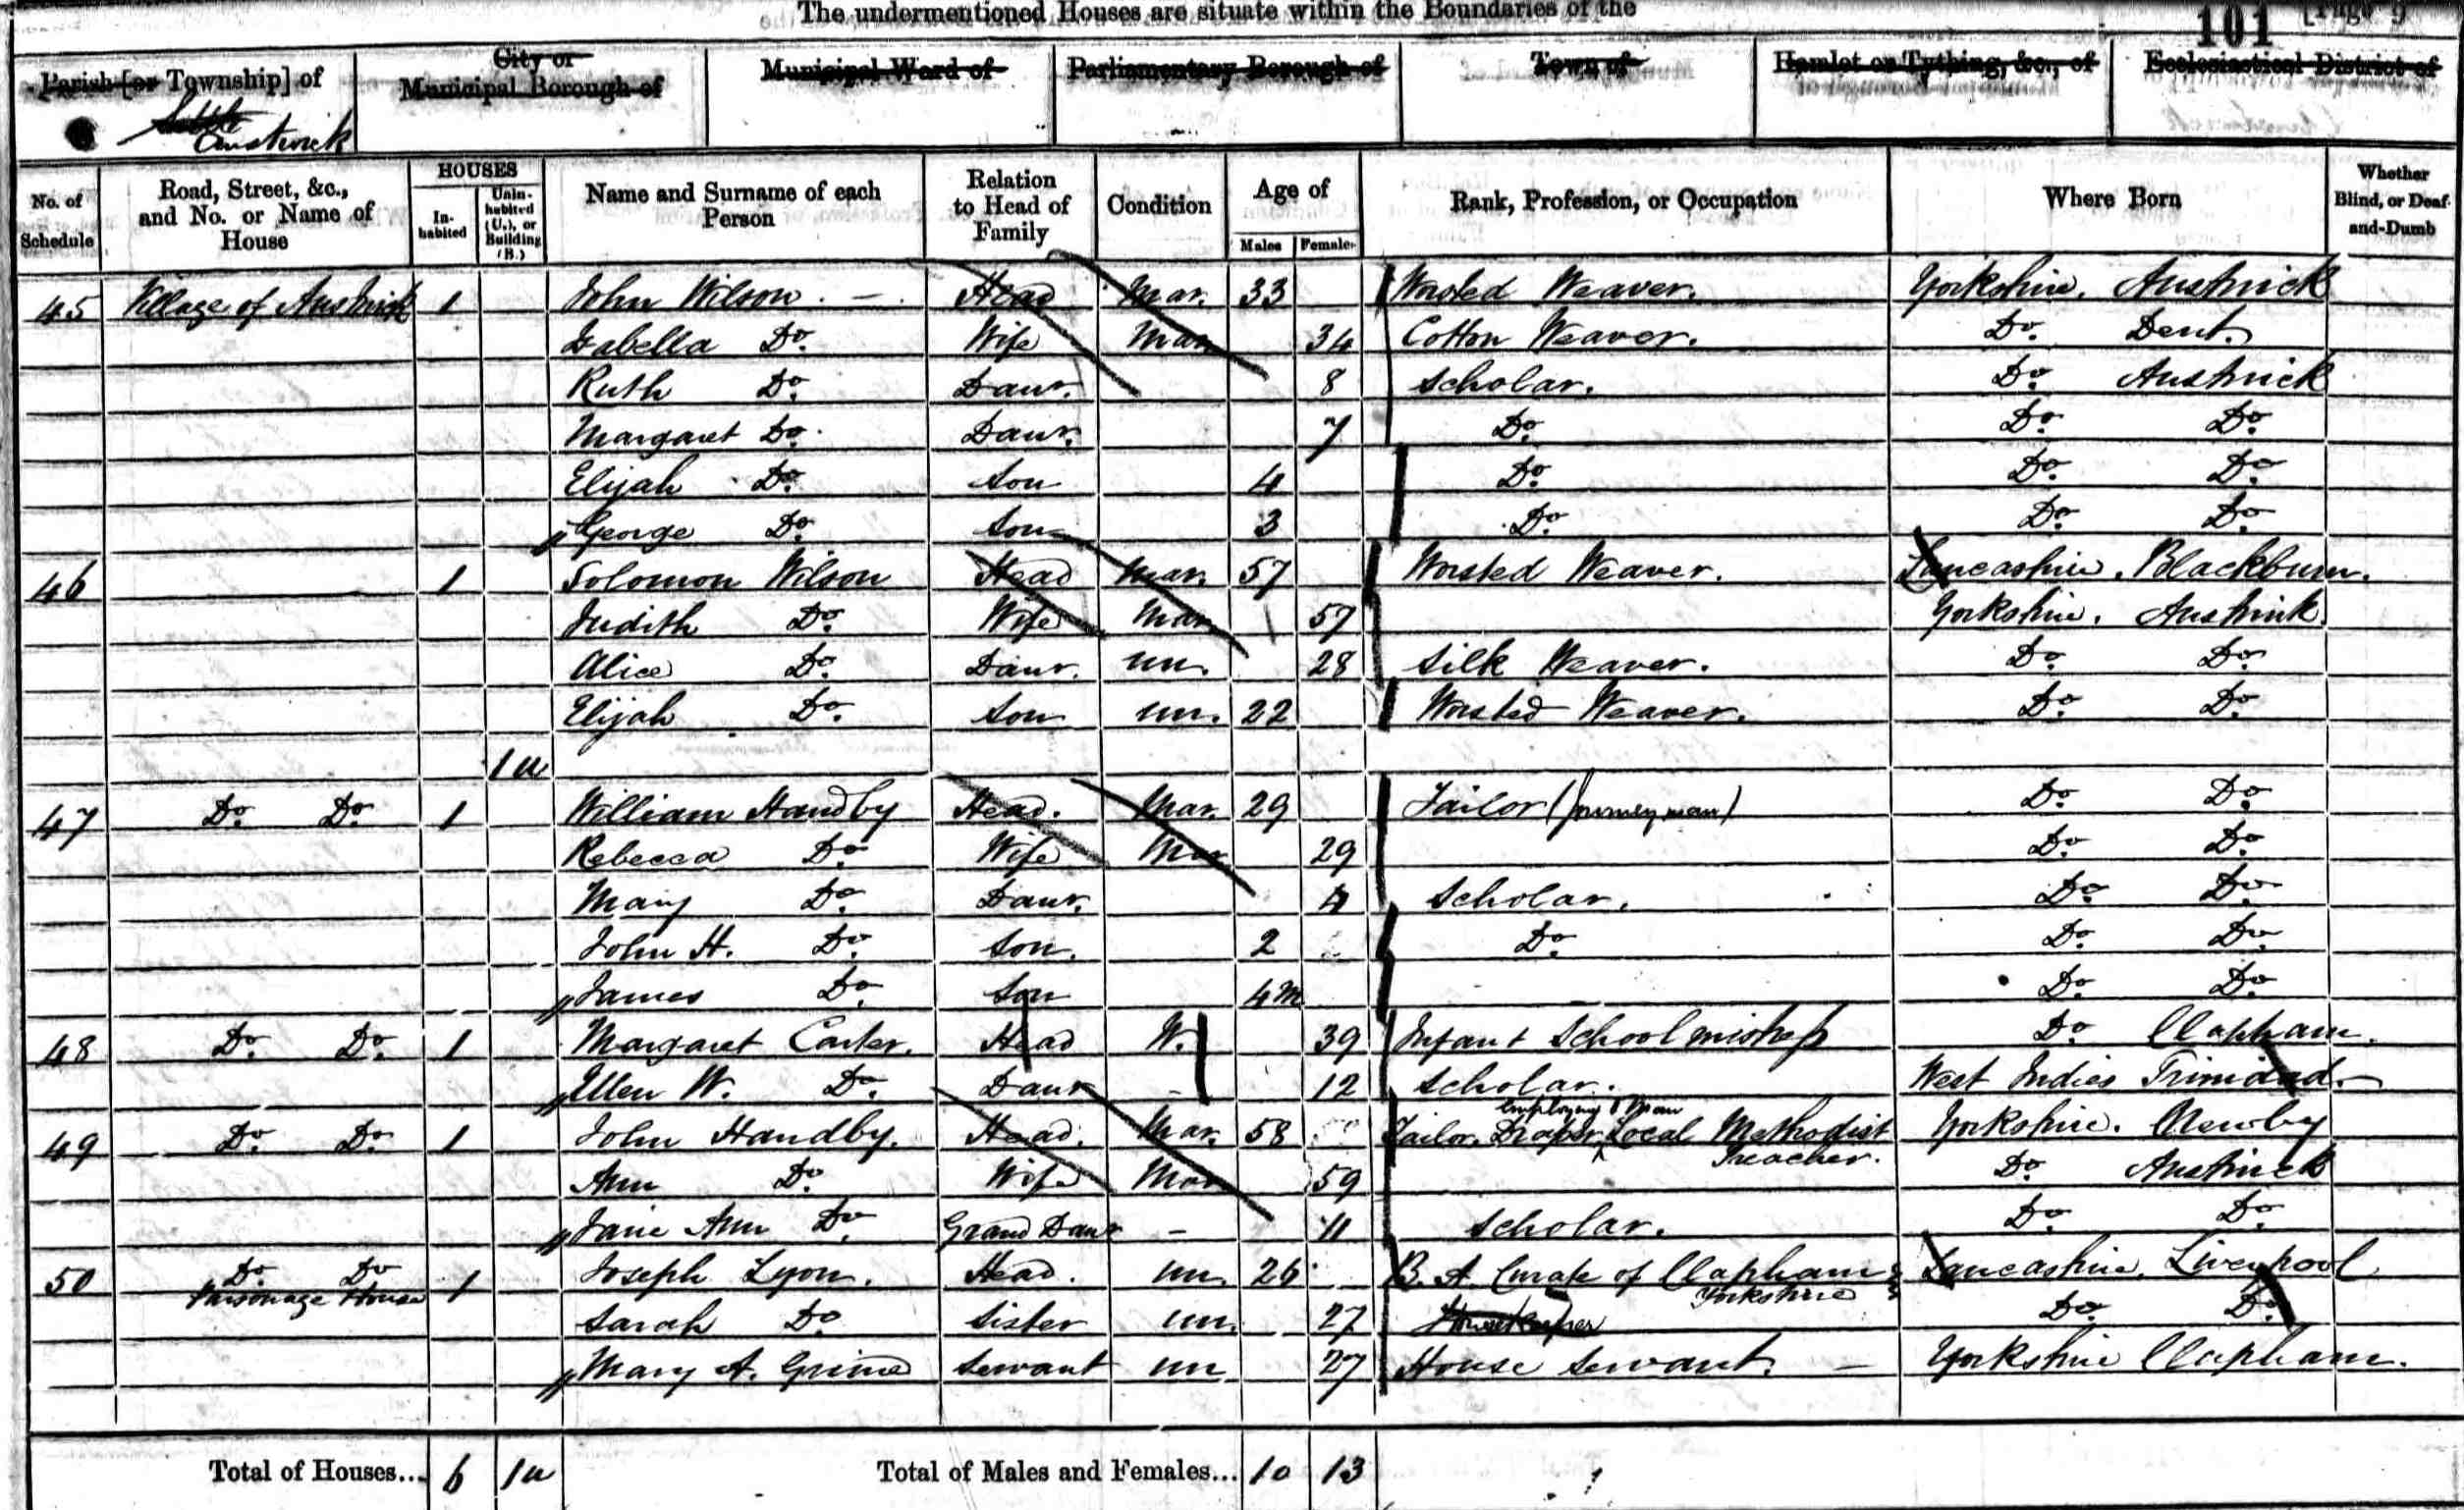 The undermentioned Houses are situate within the Boundaries of the
101 [Page 9
Parish [or Township] of
City or Municipal Borough of
Municipal Ward of
Parliamentary Borough of
Town of
Hamlet or Tything, &c., of
Ecclesiastical District of
Settle
Austwick
No. of Schedule
Road, Street, &c., and No. or Name of House
HOUSES
In-habited
Unin-habited (U.), or Building (B.)
Name and Surname of each Person
Relation to Head of Family
Condition
Age of
Males
Females
Rank, Profession, or Occupation
Where Born
Whether Blind, or Deaf-and-Dumb
45 Village of Austwick 1 John Wilson. Head Mar. 33 Worsted Weaver. Yorkshire. Austwick
Isabella Do. Wife Mar 34 Cotton Weaver. Do. Dent.
Ruth Do. Daur. 8 Scholar. Do. Austwick
Margaret Do. Daur. 7 Do. Do. Do.
Elijah Do. Son 4 Do. Do. Do.
George Do. Son 3 Do. Do. Do.
46 1 Solomon Wilson Head Mar. 57 Worsted Weaver. Lancashire. Blackburn.
Judith Do. Wife Mar 57 Yorkshire. Austwick
Alice Do. Daur. Un. 28 Silk Weaver. Do. Do.
Elijah Do. Son Un. 22 Worsted Weaver. Do. Do.
1 U
47 Do. Do. 1 William Handby Head. Mar. 29 Tailor (Journeyman) Do. Do.
Rebecca Do. Wife Mar 29 Do. Do.
Mary Do. Daur. 4 Scholar. Do. Do.
John H. Do. Son. 2 Do. Do. Do.
James Do. Son 4m Do. Do.
48 Do. Do. 1 Margaret Carter. Head W. 39 Infant School mistress Do. Clapham.
Ellen W. Do. Daur - 12 Scholar. West Indies Trinidad.
employing 1 Man
49 Do. Do. 1 John Handby. Head. Mar. 58 Tailor. Draper. Local Methodist Yorkshire. Newby
Preacher.
Ann Do. Wife Mar 59 Do. Austwick
Jane Ann Do. Grand Daur - 11 Scholar. Do. Do.
50 Do. Do. 1 Joseph Lyon. Head. Un. 26 B. A. Curate of Clapham Lancashire. Liverpool
Parsonage House Yorkshire
Sarah Do. Sister Un. 27 Housekeeper Do. Do.
Mary A. Grime Servant Un 27 House Servant. Yorkshire Clapham.
Total of Houses... 6 1 U Total of Males and Females... 10 13